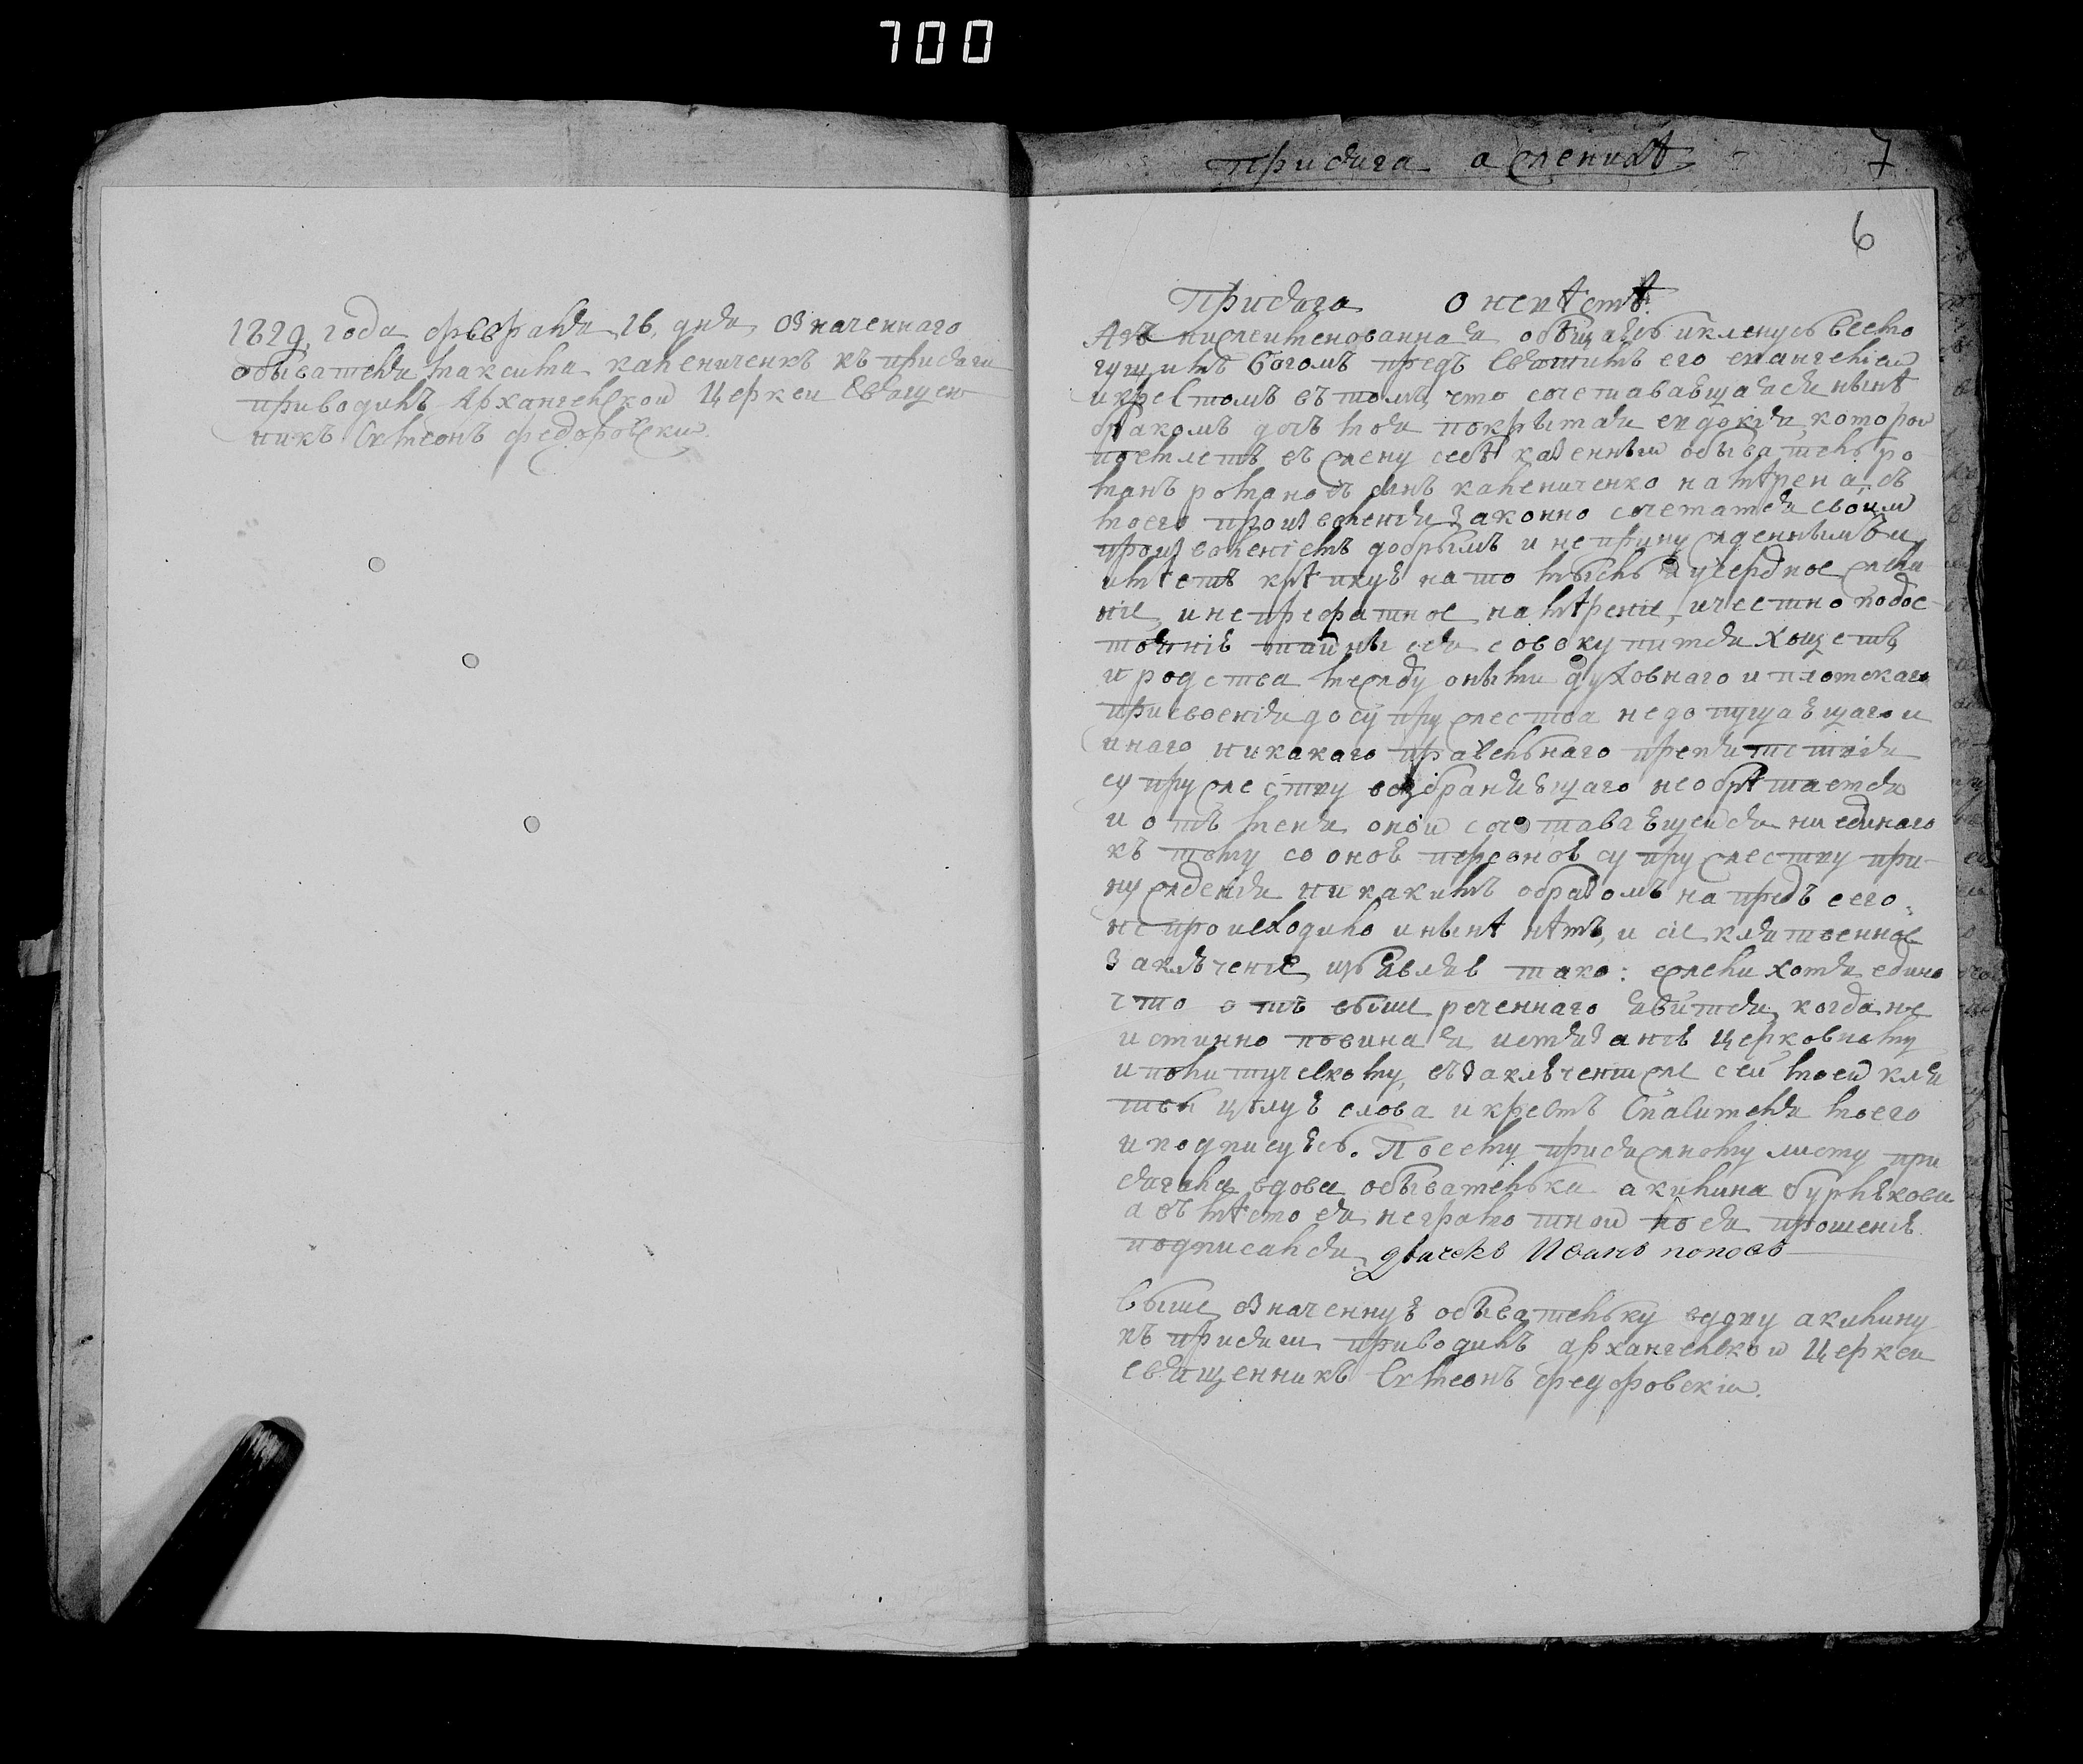 700
1829, года февраля 16, дня, означеннаго
обывателя максима капениченкъ къ присяги
приводилъ Архангелской Церкви Священ
никъ Симеонъ федоровски.
присяга а женихѣ 7
6
Присяга о невѣстѣ.
Азъ нижеименованная обѣщаюсь и кленусь всемо
гущимъ богомъ предъ святымъ его евангеліем
и крестомъ въ томъ, что сочетавающаяся нынѣ
бракомъ дочь моя покрытая евдокія, которою
поемлетъ въ жену себѣ казенный обыватель ро
манъ романовъ сынъ капениченко намѣрена, съ
моего произволения законно сочетатся своим
произволеніемъ добрымъ и непринужденнымъ и
имѣетъ крѣпкую на то мысль и усердное жела
ніе, и непревратное намѣреніе, и честно по дос
тоянію тайны сея совокупитися хощетъ,
и родства между оными духовнаго и плотскаго
присвоенія до супружества недопущающаго и
инаго никакаго правельнаго препятствія
супружеству возбраняющаго необрѣтается
и отъ меня оной сочетавающейся ни единаго
къ тому со оною персоною супружеству при-
нужденія никакимъ образомъ напредъ сего
не происходило и нынѣ нѣтъ, и сіе клятвенное
заключеніе, изъявляю тако: ежели хотя едино
что отъ выше реченнаго явится, когда не
истинно повинная истязанію церковному
и политическому, въ заключеніи же сей моей кля
твы цѣлую слова и крестъ Спасителя моего
и подписуюсь. По сему присяжному листу при
сягала вдова обывателька акилина бурлѣкова
а въ мѣсто ея неграмотной по ея прошенію
подписался дьячекъ Иванъ поповъ
Выше означенную обывательку вдову акилину
къ присяги приводилъ архангелской Церкви
священникъ Симеонъ федоровскій.